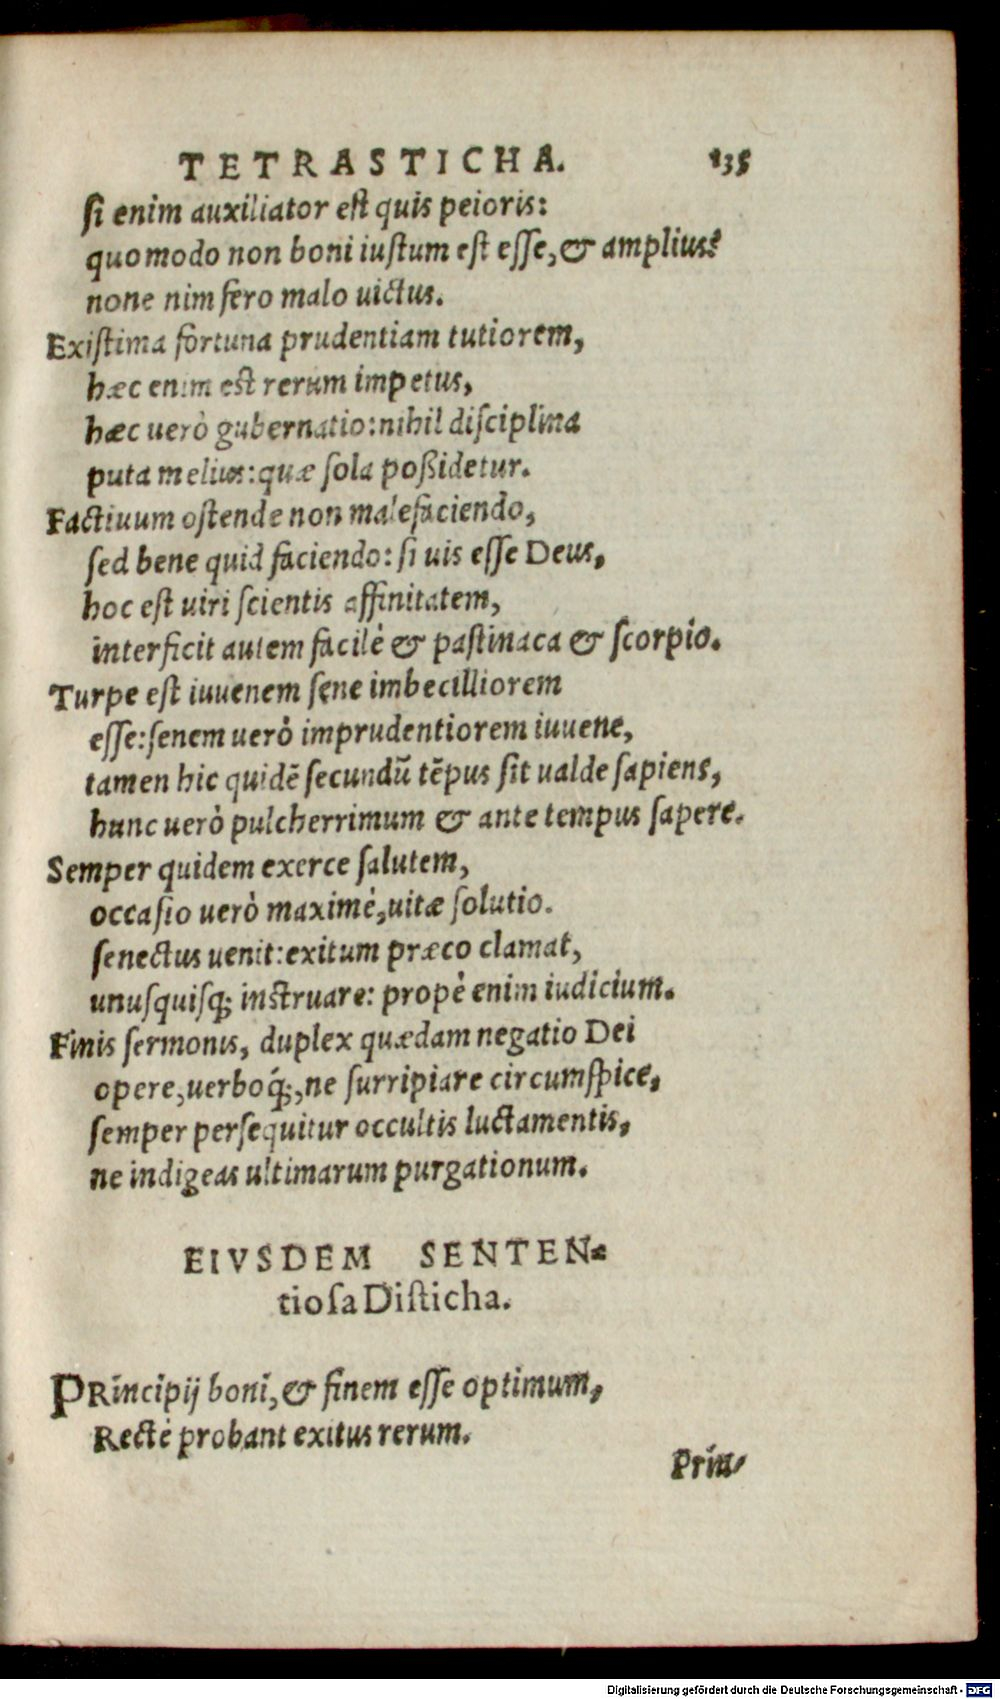 TETRASTICHA. 135
si enim auxiliator est quis peioris:
quomodo non boni iustum est esse, & amplius?
none nim fero malo uictus.
Existima fortuna prudentiam tutiorem,
hæc enim est rerum impetus,
hæc uerò gubernatio: nihil disciplina
puta melius: quæ sola poßidetur.
Factiuum ostende non malefaciendo,
sed bene quid faciendo: si uis esse Deus,
hoc est uiri scientis affinitatem,
interficit autem facilè & pastinaca & scorpio.
Turpe est iuuenem sene imbecilliorem
esse: senem uerò imprudentiorem iuuene,
tamen hic quidẽ secundũ tẽpus sit ualde sapiens,
hunc uerò pulcherrimum & ante tempus sapere.
Semper quidem exerce salutem,
occasio uerò maximè, uitæ solutio.
senectus uenit: exitum præco clamat,
unusquisq; instruare: propè enim iudicium.
Finis sermonis, duplex quædam negatio Dei
opere, uerboq́;, ne surripiare circumspice,
semper persequitur occultis luctamentis,
ne indigeas ultimarum purgationum.
EIVSDEM SENTEN-
tiosa Disticha.
PRincipij boni, & finem esse optimum,
Rectè probant exitus rerum.
Prin-
Digitalisierung gefördert durch die Deutsche Forschungsgemeinschaft - DFG